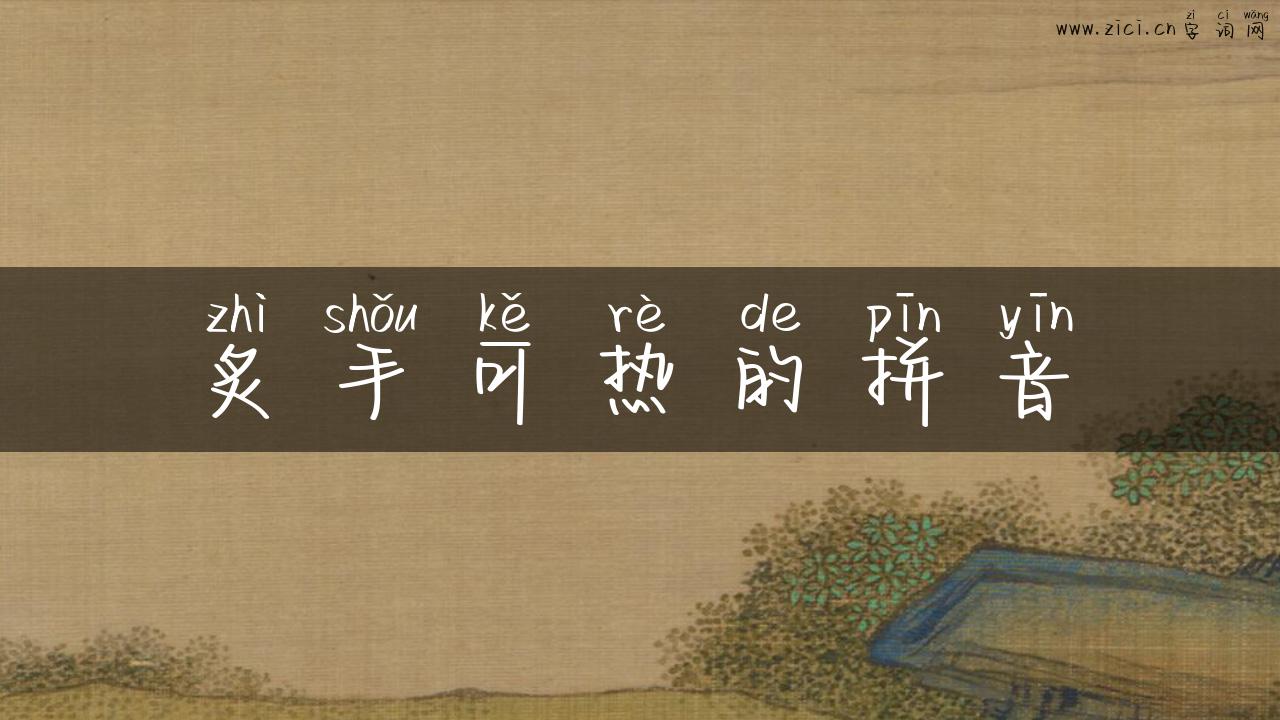 zì cí wǎng
www.zici.cn 字词网
zhì shǒu kě rè de pīn yīn
炙手可热的拼音